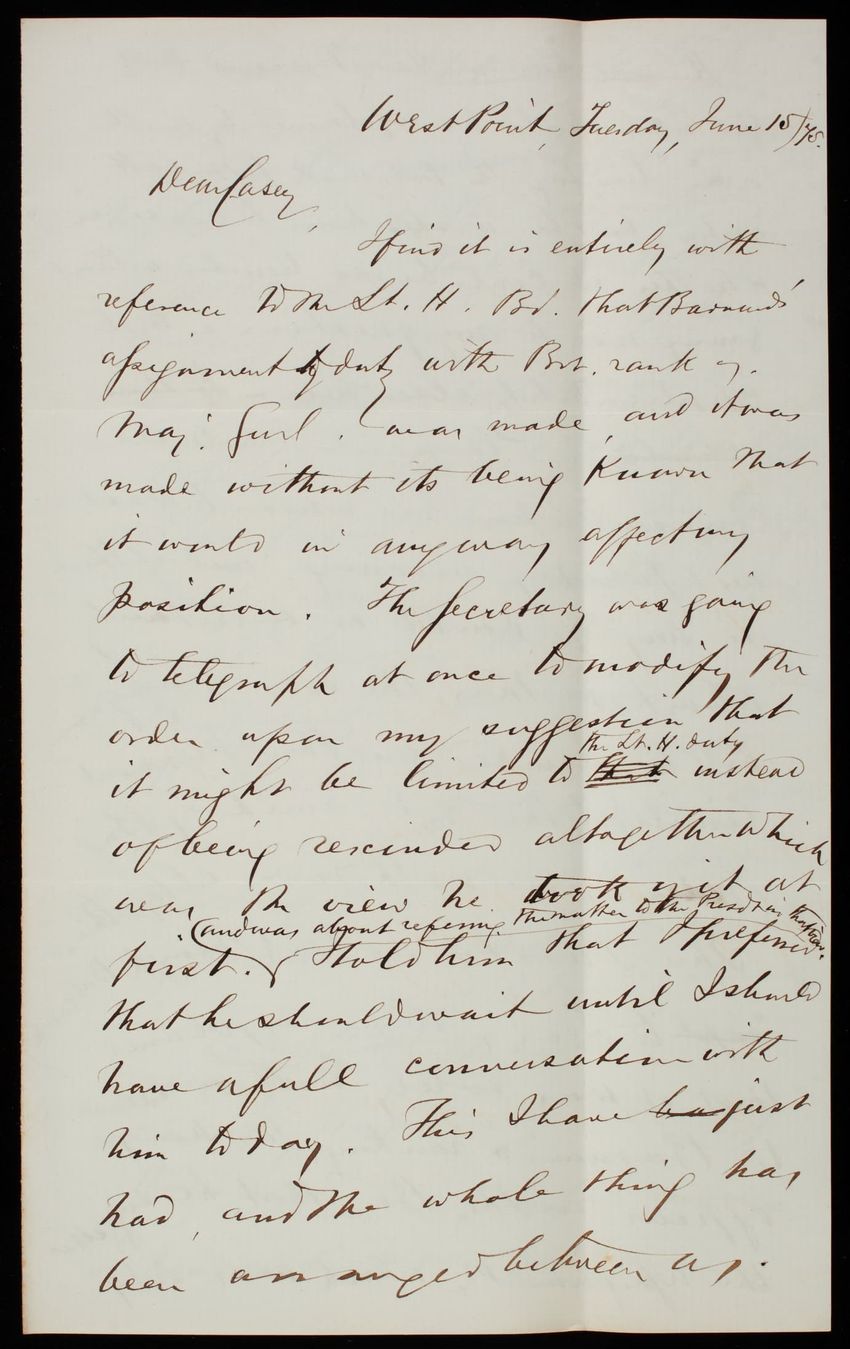 West Point, Tuesday, June 15/75.
Dear Casey,
I find it is entirely with
reference to the Lt. H. Bd. that Barnard's
assignment to duty with Bvt. rank of
Maj. Genl. was made, and it was
made without its being known that
it would in any way affect my
position. The Secretary was going
to telegraph at once to modify the
order upon my suggestion that
the Lt. H. duty
it might be limited to instead
of being rescinded altogether which
was the view he took of it at
(and was about referring the matter to the Presdt in that view.
first. I told him that I preferred
that he should wait until I should
have a full conversation with
him today. This I have just
had, and the whole thing has
been arranged between us.